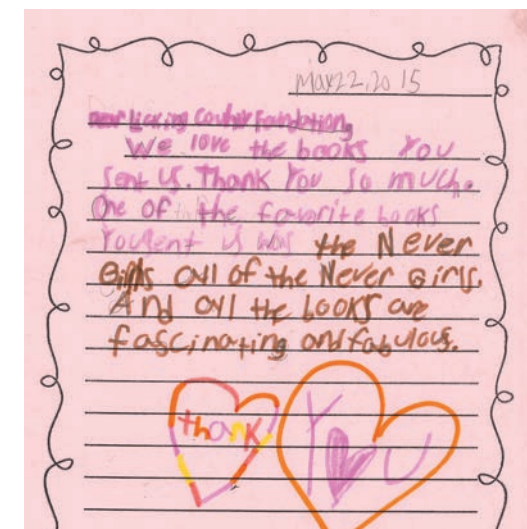 May 22, 2015
Dear Licking County Foundation,
We love the books You
sent us. Thank You so much.
One of the favorite books
You sent us was the Never
Girls all of the Never Girls.
And all the books are
fascinating and fabulous.
thank
You